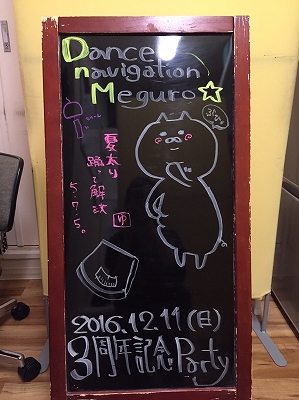 Dance
navigation
Meguro
夏太り
踊って解決
5.7.5。
ゆ
2016.12.11(日)
3周年記念 Party